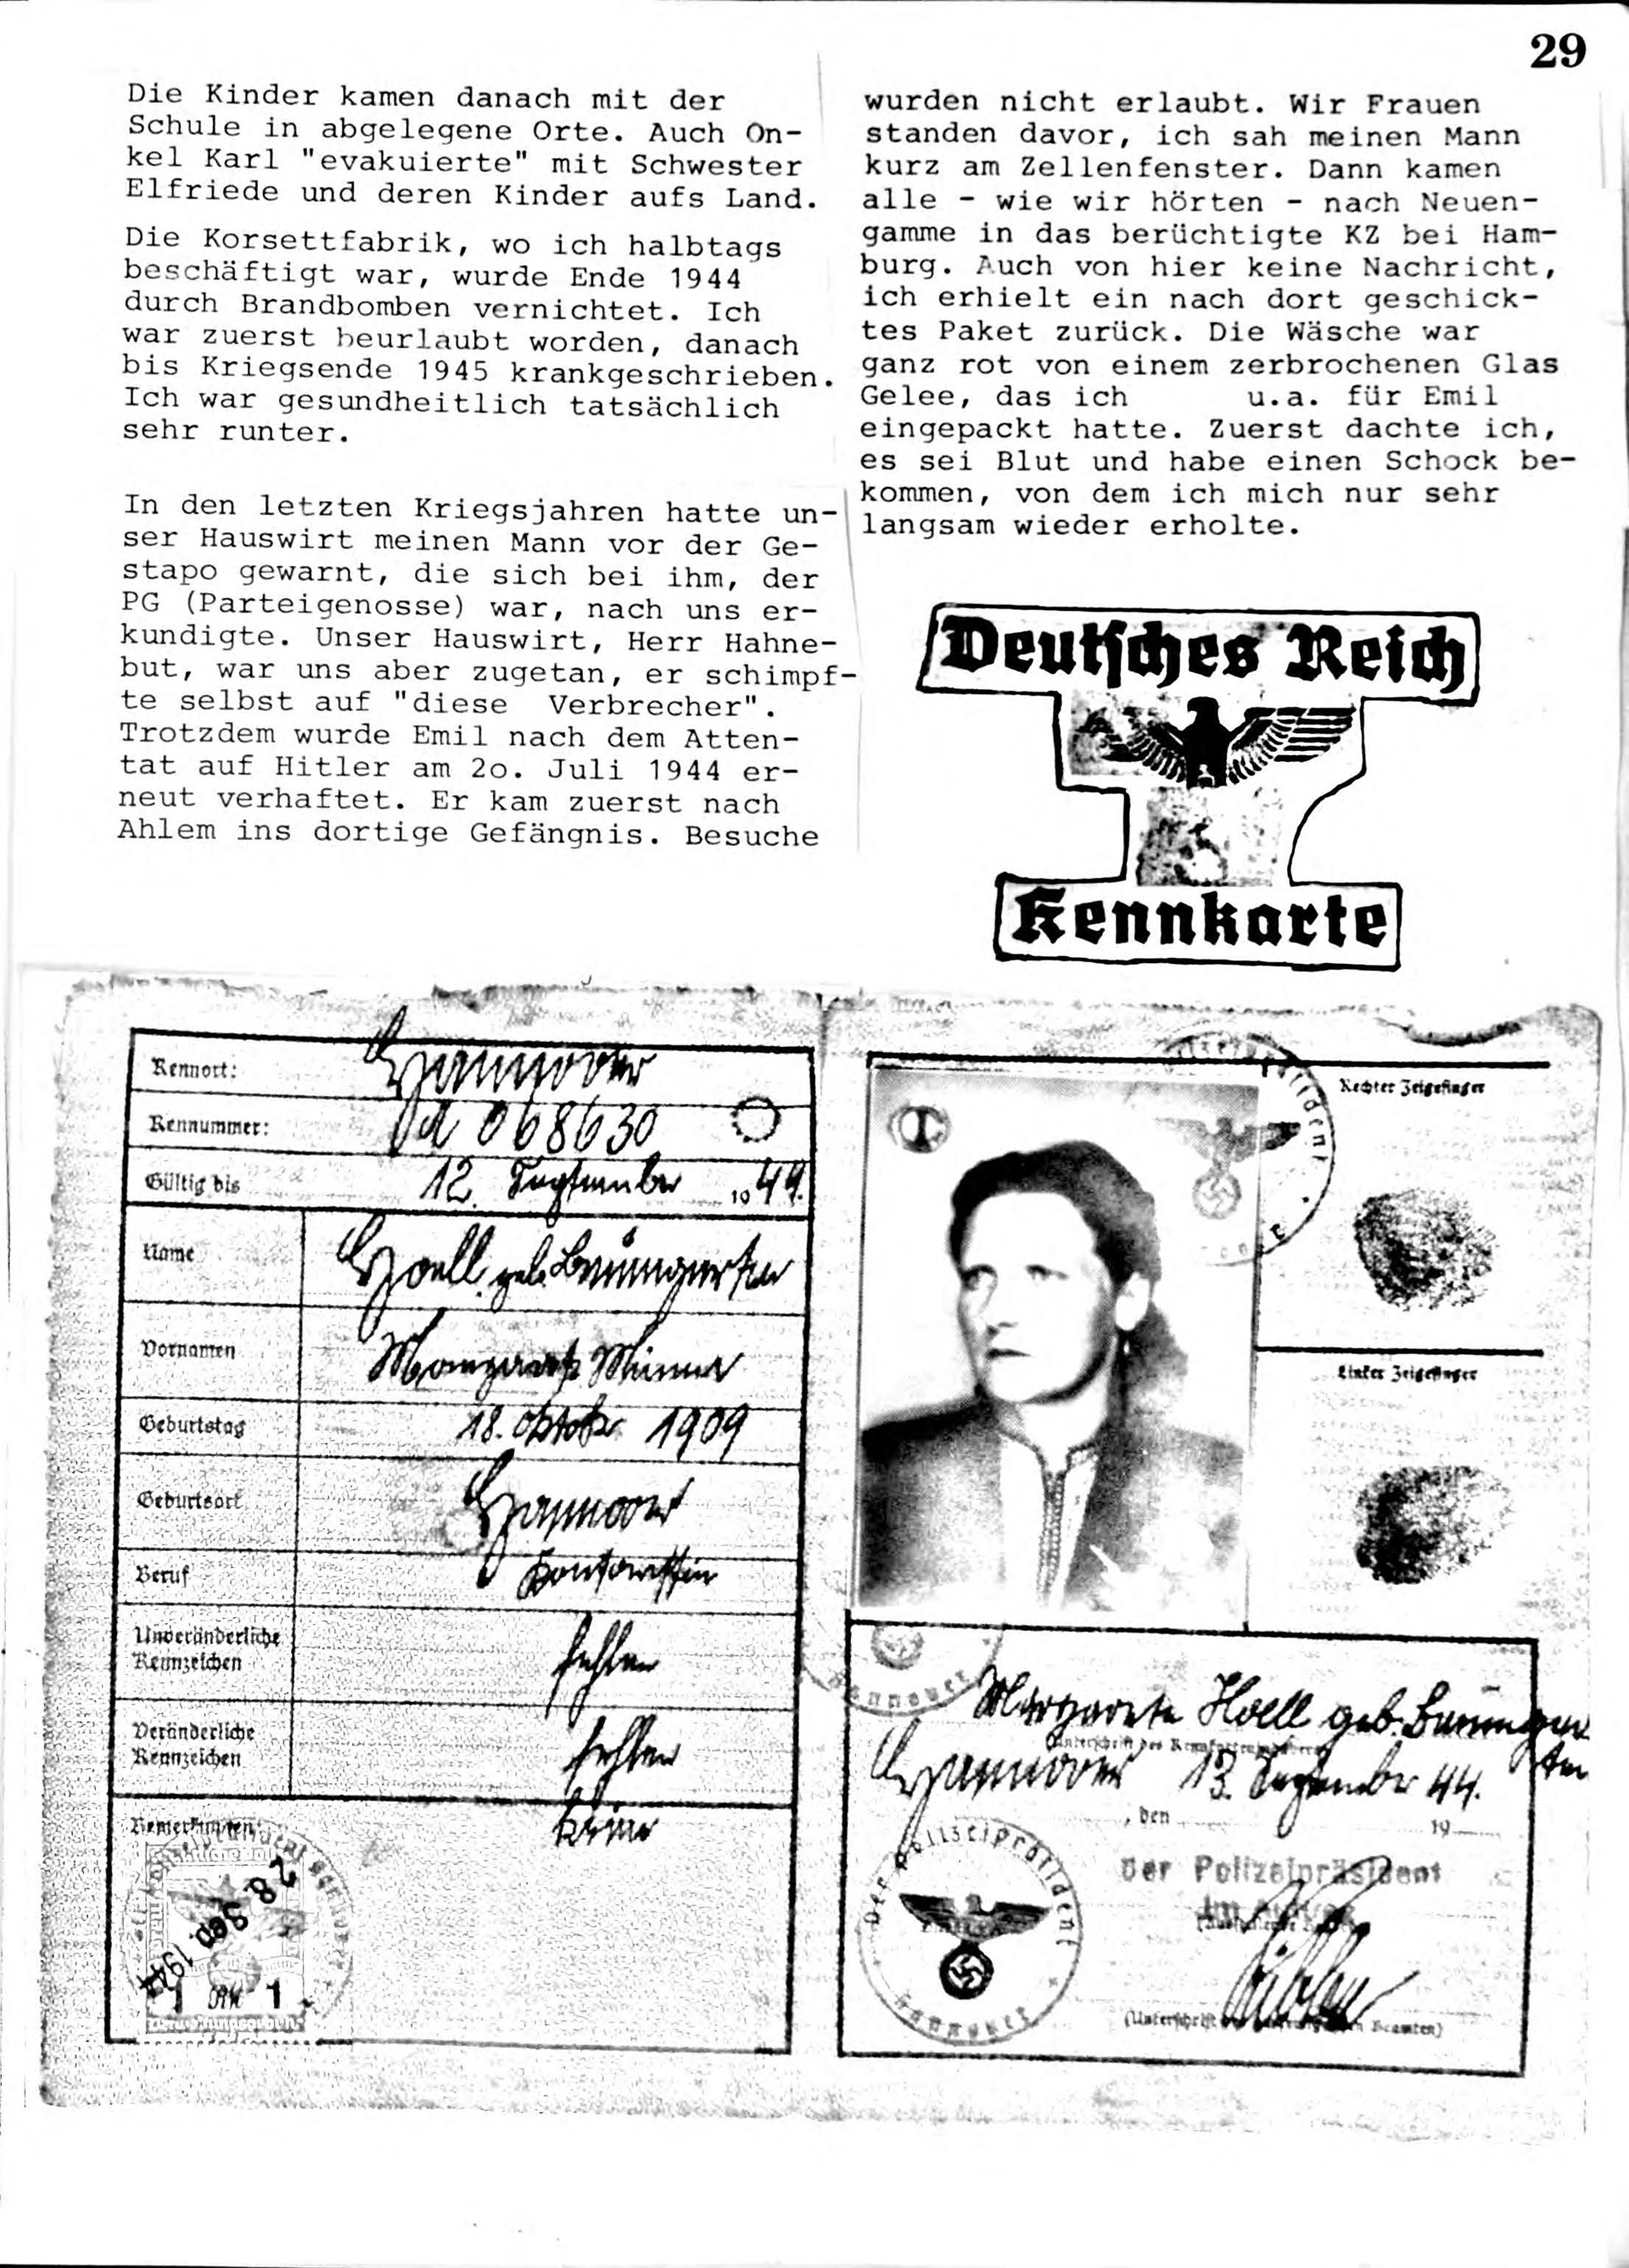 29
Die Kinder kamen danach mit der
Schule in abgelegene Orte. Auch On-
kel Karl "evakuierte" mit Schwester
Elfriede und deren Kinder aufs Land.
Die Korsettfabrik, wo ich halbtags
beschäftigt war, wurde Ende 1944
durch Brandbomben vernichtet. Ich
war zuerst beurlaubt worden, danach
bis Kriegsende 1945 krankgeschrieben.
Ich war gesundheitlich tatsächlich
sehr runter.
In den letzten Kriegsjahren hatte un-
ser Hauswirt meinen Mann vor der Ge-
stapo gewarnt, die sich bei ihm, der
PG (Parteigenosse) war, nach uns er-
kundigte. Unser Hauswirt, Herr Hahne-
but, war uns aber zugetan, er schimpf-
te selbst auf "diese Verbrecher".
Trotzdem wurde Emil nach dem Atten-
tat auf Hitler am 2o. Juli 1944 er-
neut verhaftet. Er kam zuerst nach
Ahlem ins dortige Gefängnis. Besuche
wurden nicht erlaubt. Wir Frauen
standen davor, ich sah meinen Mann
kurz am Zellenfenster. Dann kamen
alle - wie wir hörten - nach Neuen-
gamme in das berüchtigte KZ bei Ham-
burg. Auch von hier keine Nachricht,
ich erhielt ein nach dort geschick-
tes Paket zurück. Die Wäsche war
ganz rot von einem zerbrochenen Glas
Gelee, das ich u.a. für Emil
eingepackt hatte. Zuerst dachte ich,
es sei Blut und habe einen Schock be-
kommen, von dem ich mich nur sehr
langsam wieder erholte.
Deutsches Reich
Kennkarte
Kennort: Hannover
Kennummer: A 068630
Gültig bis 12. September 1949.
Name Hoell geb. Baumgarten
Vornamen Margarete Minna
Geburtstag 18. Oktober 1909
Geburtsort Hannover
Beruf Kontoristin
Unveränderliche
Kennzeichen fehlen
Veränderliche
Kennzeichen fehlen
Bemerkungen: keine
28. Sep. 1944
1 RM 1
Rechter Zeigefinger
Linker Zeigefinger
Hannover
Margarete Hoell geb. Baumgar
ten
(Unterschrift des Kennkarteninhabers)
Hannover 13. September 44.
, den 19
Der Polizeipräsident
Der Polizeipräsident
Hannover
(Unterschrift des Beamten)